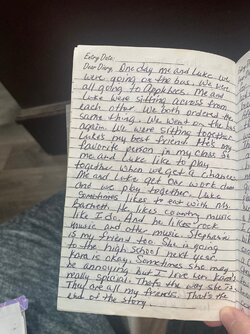 Entry Date:
Dear Diary, One day me and Luke we
were going on the bus. We were
all going to Applebees. Me and
Luke were sitting across from
each other. We both ordered the
same thing. We went on the bus
again. We were sitting together
Luke's my best friend. He's my
favorite person in my class. So
me and Luke like to play
together when we get a chance.
Me and Luke get our work done
and we play together. Luke
Sometimes likes to eat with Ms.
Barneth. He likes country music
like I do. And he likes rock
music and other music. Stephanie
is my friend too. She is going
to the high school next year.
Pam is okay. Sometimes she may
be annoying but I love her. 
really special. Thats the way she is.
They are all my friends. That's the
end of the story.